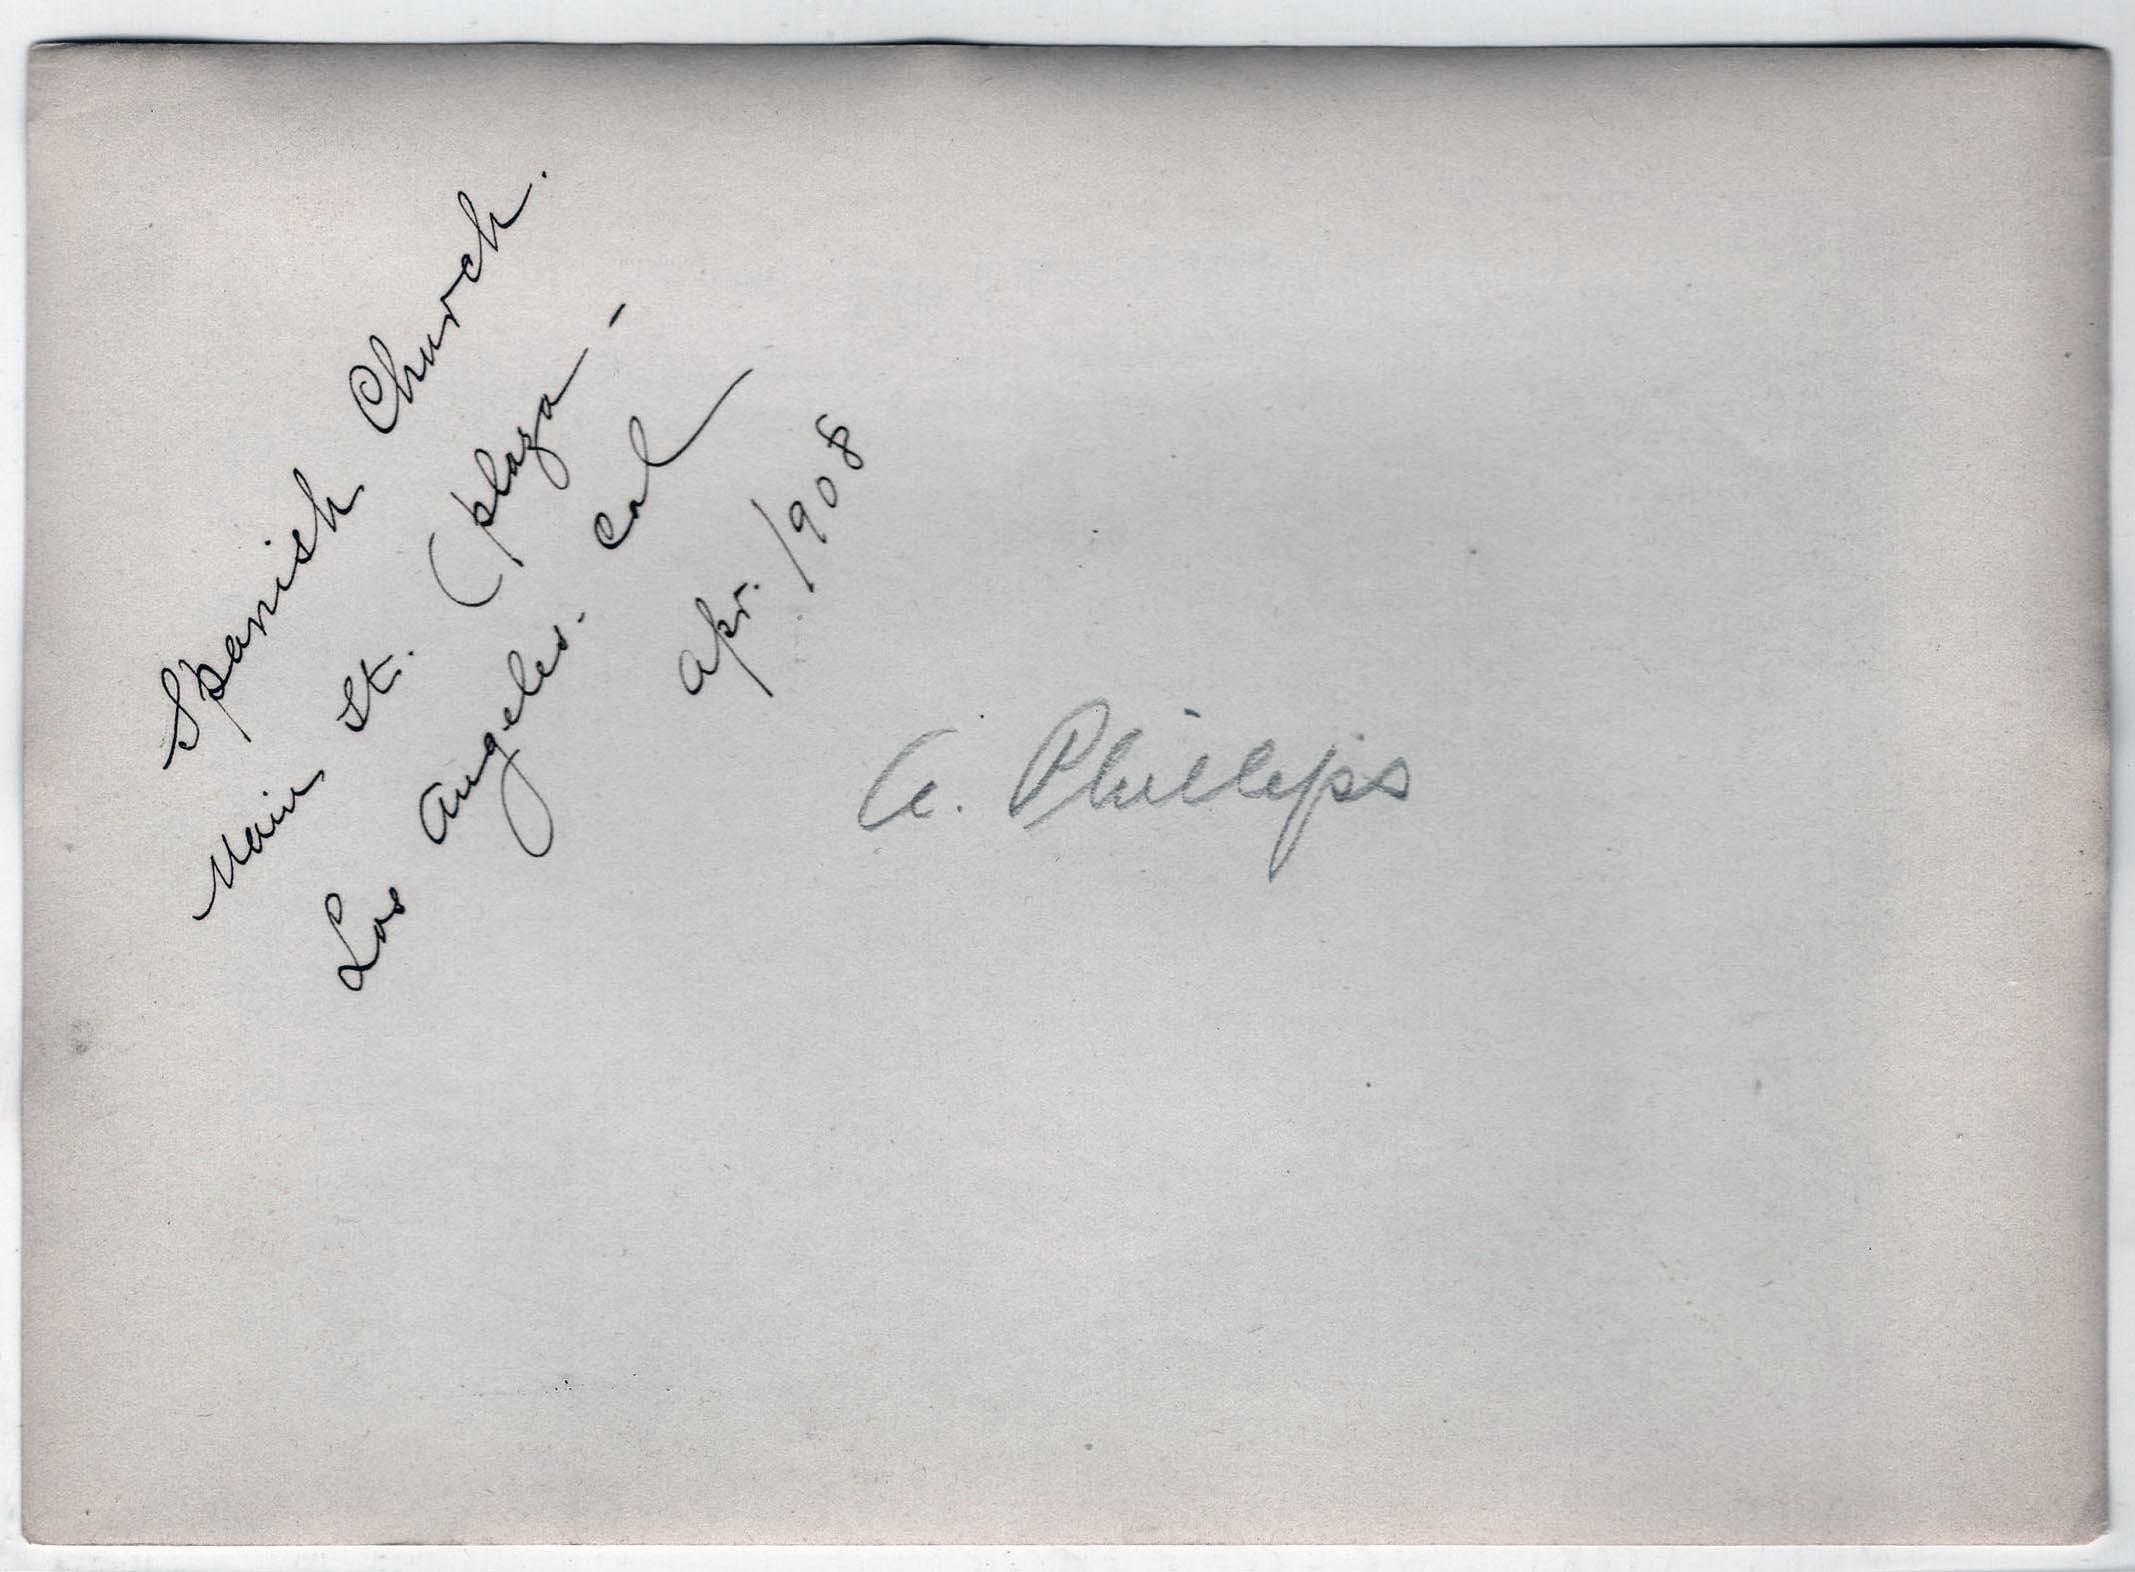 Spanish Church.
Main St. (plaza -
Los Angeles. Cal
Apr. 1908
A. Phillips